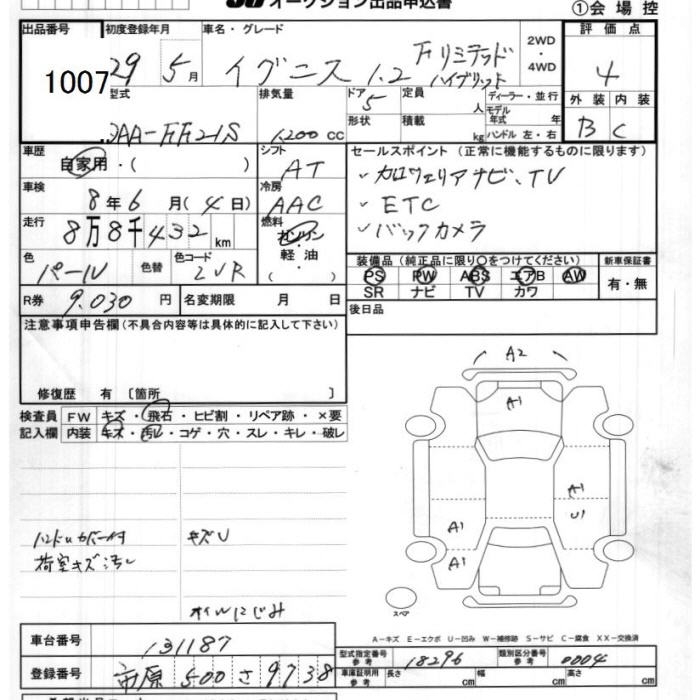 オークション出品申込書 ①会場控
出品番号 初度登録年月 車名・グレード 評価点
1007 29 5月 イグニス 1.2 Fリミテッド ハイブリット 2WD・4WD 4
型式 排気量 ドア 定員 ディーラー・並行 外装 内装
DAA-FF21S 1,200cc 5 人 モデル年式 年 B C
形状 積載 kg ハンドル 左・右
車歴 自家用・( ) シフト AT セールスポイント (正常に機能するものに限ります)
車検 8年6月(4日) 冷房 AAC ・カロッツェリアナビ、TV
・ETC
走行 8万8千432km 燃料 ガソリン・軽油・( ) ・バックカメラ
色 パール 色替 色コード ZVR 装備品 (純正品に限り○をつけてください) 新車保証書
PS PW ABS エアB AW 有・無
R券 9,030円 名変期限 月 日 SR ナビ TV カワ
注意事項申告欄(不具合内容等は具体的に記入して下さい) 後日品
修復歴 有 〔箇所 〕
検査員 FW キズ・飛石・ヒビ割・リペア跡・×要
記入欄 内装 キズ・汚レ・コゲ・穴・スレ・キレ・破レ
A2
A1
A1
U1
A1
A1
スペア
ハンドルカバー付 キズU
荷室キズ汚レ
オイルにじみ
A-キズ E-エクボ U-凹み W-補修跡 S-サビ C-腐食 XX-交換済
車台番号 131187
型式指定番号 参考 18296 類別区分番号 参考 0004
登録番号 市原 500 さ 9738 車庫証明用 参考 長さ cm 幅 cm 高さ cm